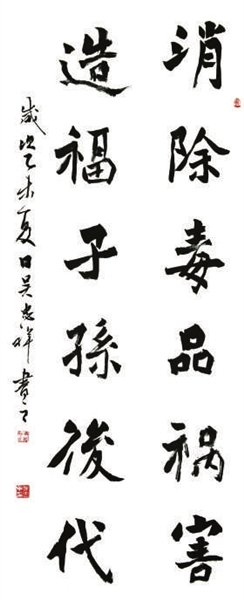 消除毒品祸害
造福子孫後代
歲次乙未夏日吴志祥書